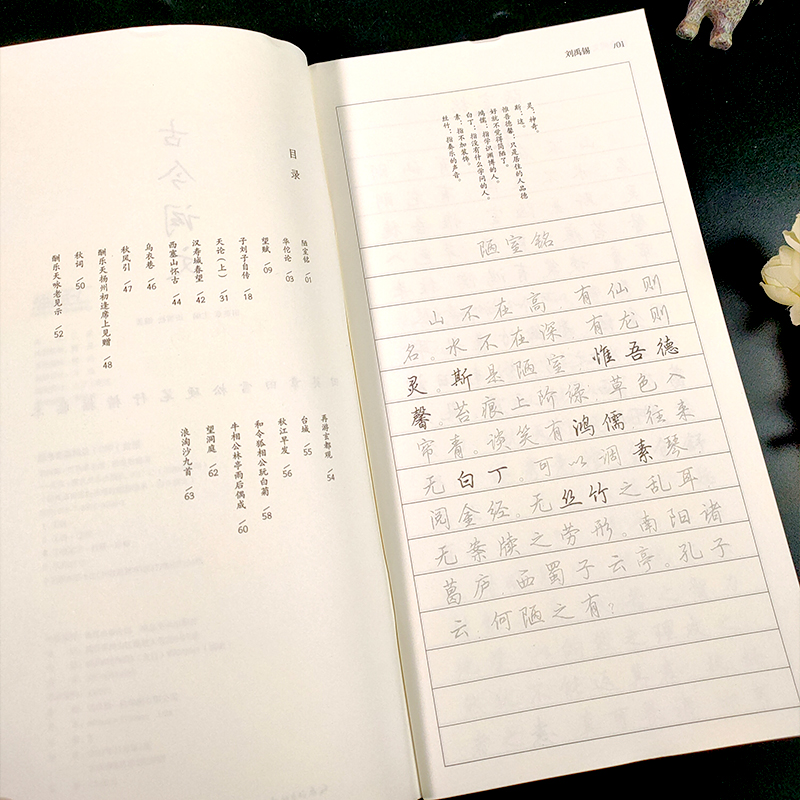 目录
陋室铭 /01
华佗论 /03
望赋 /09
子刘子自传 /18
天论（上） /31
汉寿城春望 /42
西塞山怀古 /44
乌衣巷 /46
秋风引 /47
酬乐天扬州初逢席上见赠 /48
秋词 /50
酬乐天咏老见示 /52
再游玄都观 /54
台城 /55
秋江早发 /56
和令狐相公玩白菊 /58
牛相公林亭雨后偶成 /60
望洞庭 /62
浪淘沙九首 /63
刘禹锡 /01
灵：神奇。
斯：这。
惟吾德馨：只是居住的人品德
好就不觉得简陋了。
鸿儒：指学识渊博的人。
白丁：指没有什么学问的人。
素：指不加装饰。
丝竹：指奏乐的声音。
陋室铭
山不在高，有仙则
名。水不在深，有龙则
灵。斯是陋室，惟吾德
馨。苔痕上阶绿，草色入
帘青。谈笑有鸿儒，往来
无白丁。可以调素琴，
阅金经。无丝竹之乱耳，
无案牍之劳形。南阳诸
葛庐，西蜀子云亭。孔子
云：何陋之有？